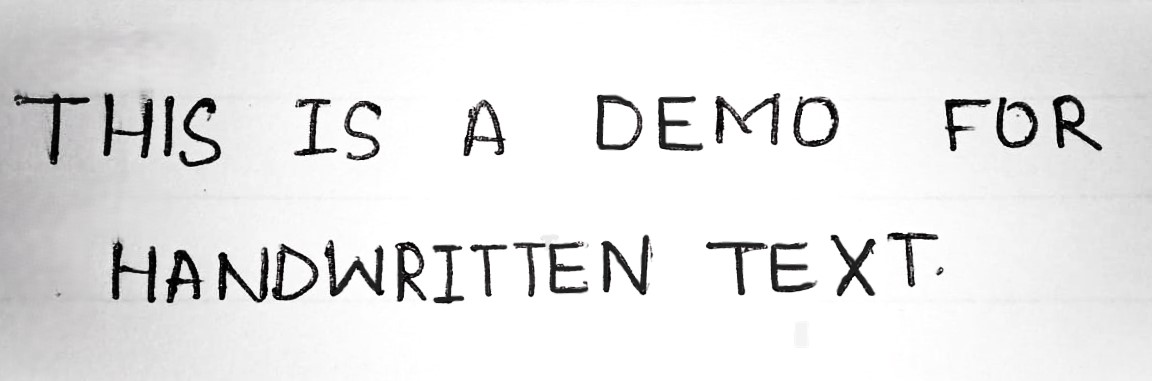 THIS IS A DEMO FOR
HANDWRITTEN TEXT.